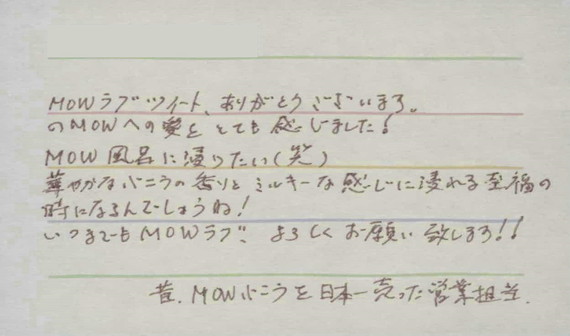 MOWラブツイート、ありがとうございます。
のMOWへの愛をとても感じました!
MOW風呂に浸りたい(笑)
華やかなバニラの香りとミルキーな感じに浸れる至福の
時になるんでしょうね!
いつまでもMOWラブ、よろしくお願い致します!!
昔、MOWバニラを日本一売った営業担当。